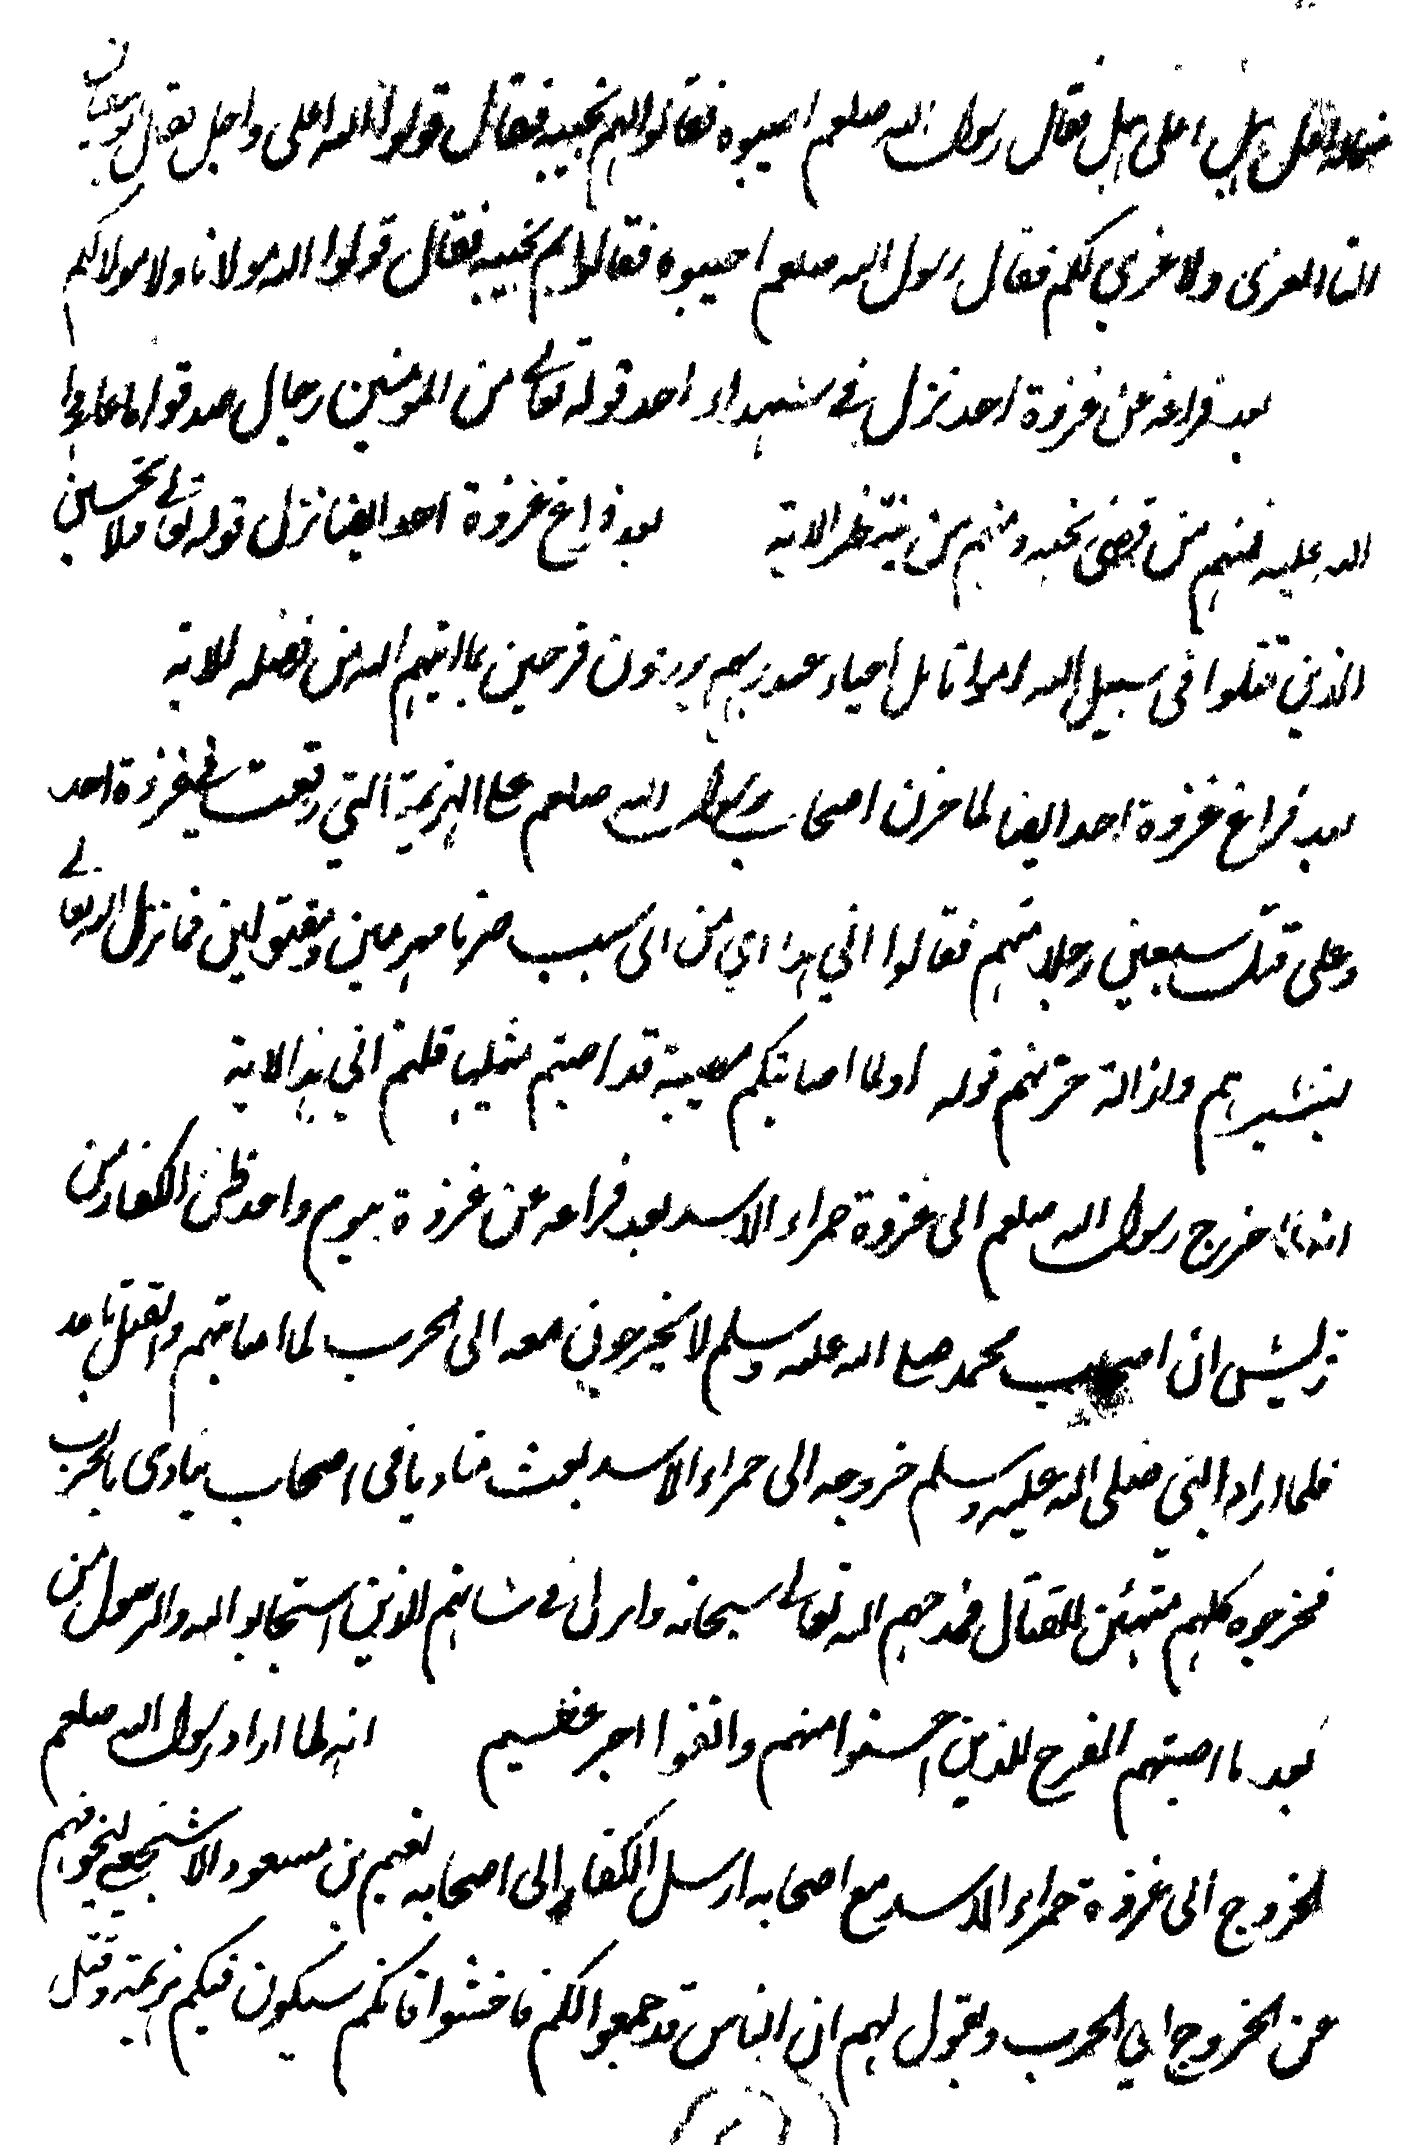 اعل هبل اعلى هبل فقال رسول الله صلعم اجيبوه فقالوا بم نجيبه فقال قولوا الله اعلى واجل فقال ابو سفيان
لنا العزى ولا عزي لكم فقال رسول الله صلعم اجيبوه فقالوا بم نجيبه فقال قولوا الله مولانا ولا مولا لكم
بعد فراغه عن غزوة احد نزل في شهداء احد قوله تعالى من المومنين رجال صدقوا ما عاهدوا
الله عليه فمنهم من قضى نحبه ومنهم من ينتظر الاية بعد فراغ غزوة احد ايضا نزل قوله تعالى ولا تحسبن
الذين قتلوا في سبيل الله امواتا بل احياء عند ربهم يرزقون فرحين بما اتيهم الله من فضله الاية
بعد فراغ غزوة احد ايضا لما حزن اصحاب رسول الله صلعم على الهزيمة التي وقعت في غزوة احد
وعلى قتل سبعين رجلا منهم فقالوا اني هذا اي من اى سبب صرنا مهزمين ومقتولين فانزل الله تعالى
لتبشيرهم وازالة حزنهم قوله اولما اصابتكم مصيبة قد اصبتم مثليها قلتم اني هذا الاية
انه لما خرج رسول الله صلعم الى غزوة حمراء الاسد بعد فراغه عن غزوة بيوم واحد ظن الكفار من
قريش ان اصحاب محمد صلى الله عليه وسلم لا يخرجون معه الى الحرب لما اصابتهم والقتل باحد
فلما اراد النبي صلى الله عليه وسلم خروجه الى حمراء الاسد بعث مناديا في اصحاب ينادى بالحرب
فخرجوه كلهم متهيئن للقتال فمدحهم الله تعالى سبحانه وانزل في شانهم الذين استجابوا لله والرسول من
بعد ما اصبتهم القرح للذين احسنوا منهم واتقوا اجر عظيم انه لما اراد رسول الله صلعم
الخروج الى غزوة حمراء الاسد مع اصحابه ارسل الكفار الى اصحابه نعيم بن مسعود الاشجعي ليخوفهم
عن الخروج الي الحرب ويقول لهم ان الناس قد جمعوا لكم فاخشوا فانكم سيكون فيكم هزيمة وقتل